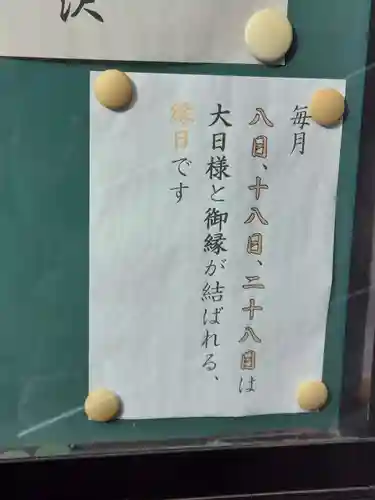 沢
毎月
八日、十八日、二十八日は
大日様と御縁が結ばれる、
縁日です